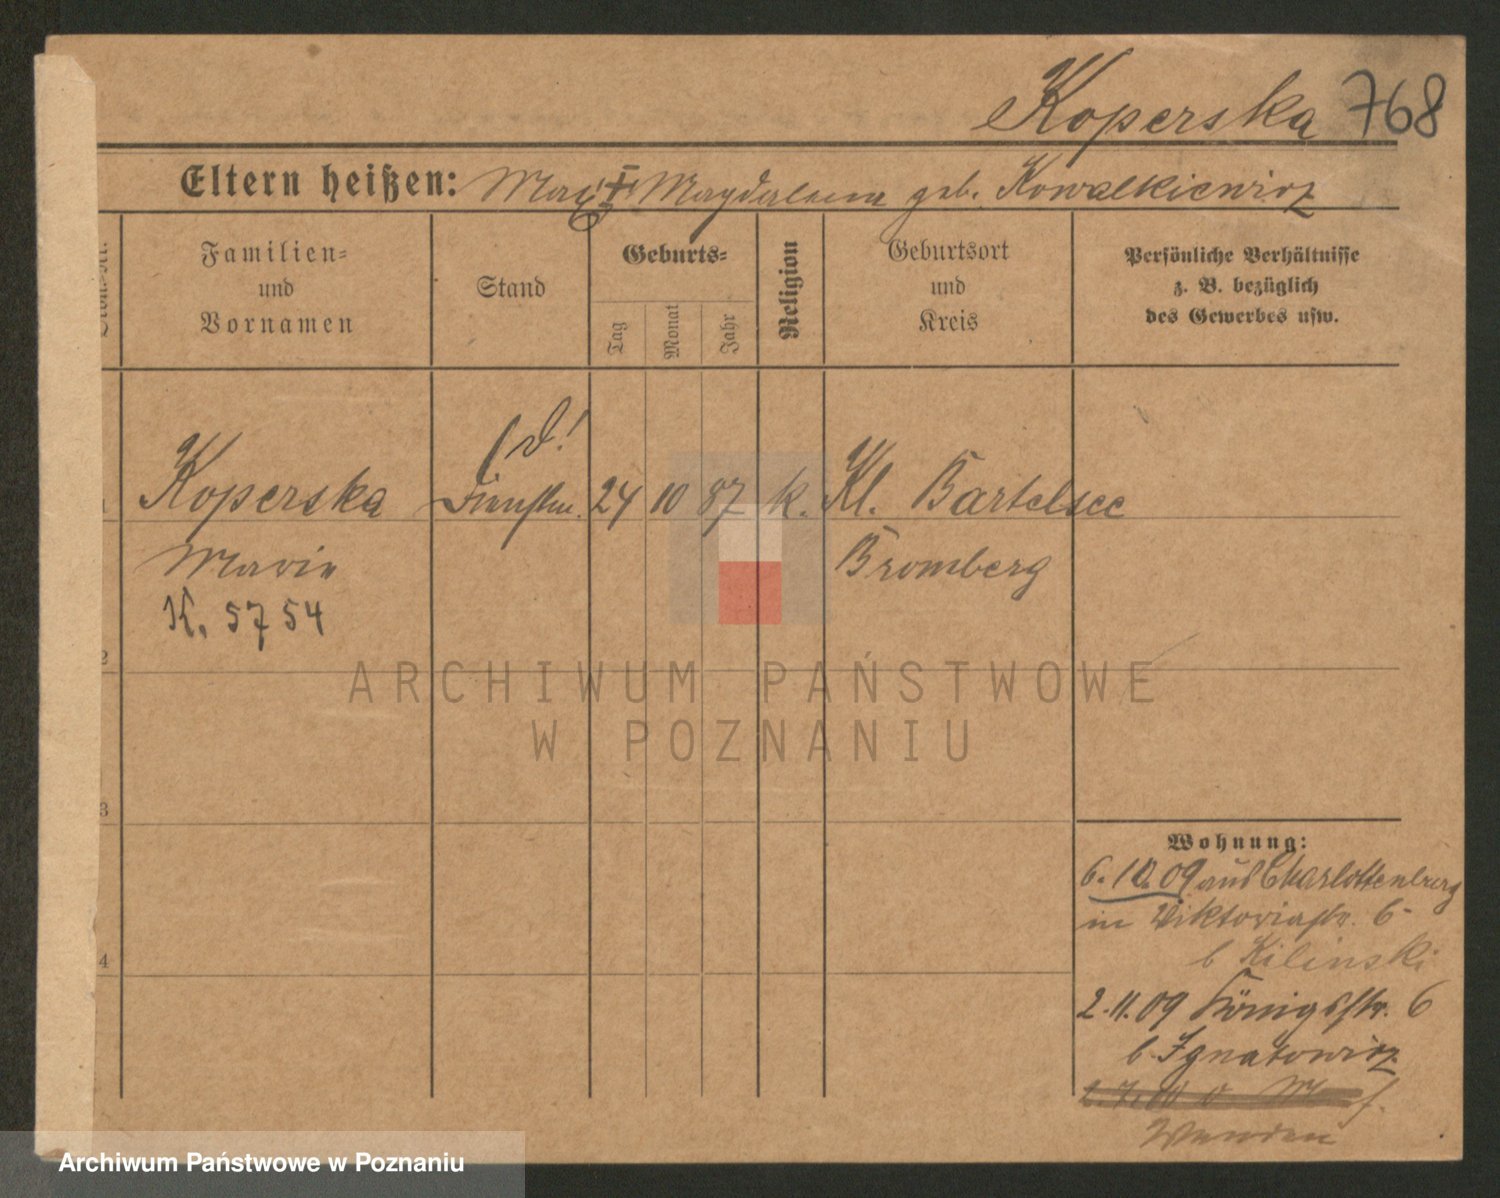 Koperska 768
Eltern heißen: Max Magdalena geb. Kowalkiewicz
Familien=
und
Vornamen
Stand
Geburts=
Tag
Monat
Jahr
Religion
Geburtsort
und
Kreis
Persönliche Verhältnisse
z. B. bezüglich
des Gewerbes usw.
Koperska 24 10 87 k. Kl. Bartelsee
Marie Bromberg
K. 5754
2
3
4
Wohnung:
6.10.09 aus Charlottenburg
in Viktoriastr. 6
b Kilinski
2.11.09 Königsstr. 6
b. Ignatowicz
Wenden
ARCHIWUM PAŃSTWOWE
W POZNANIU
Archiwum Państwowe w Poznaniu